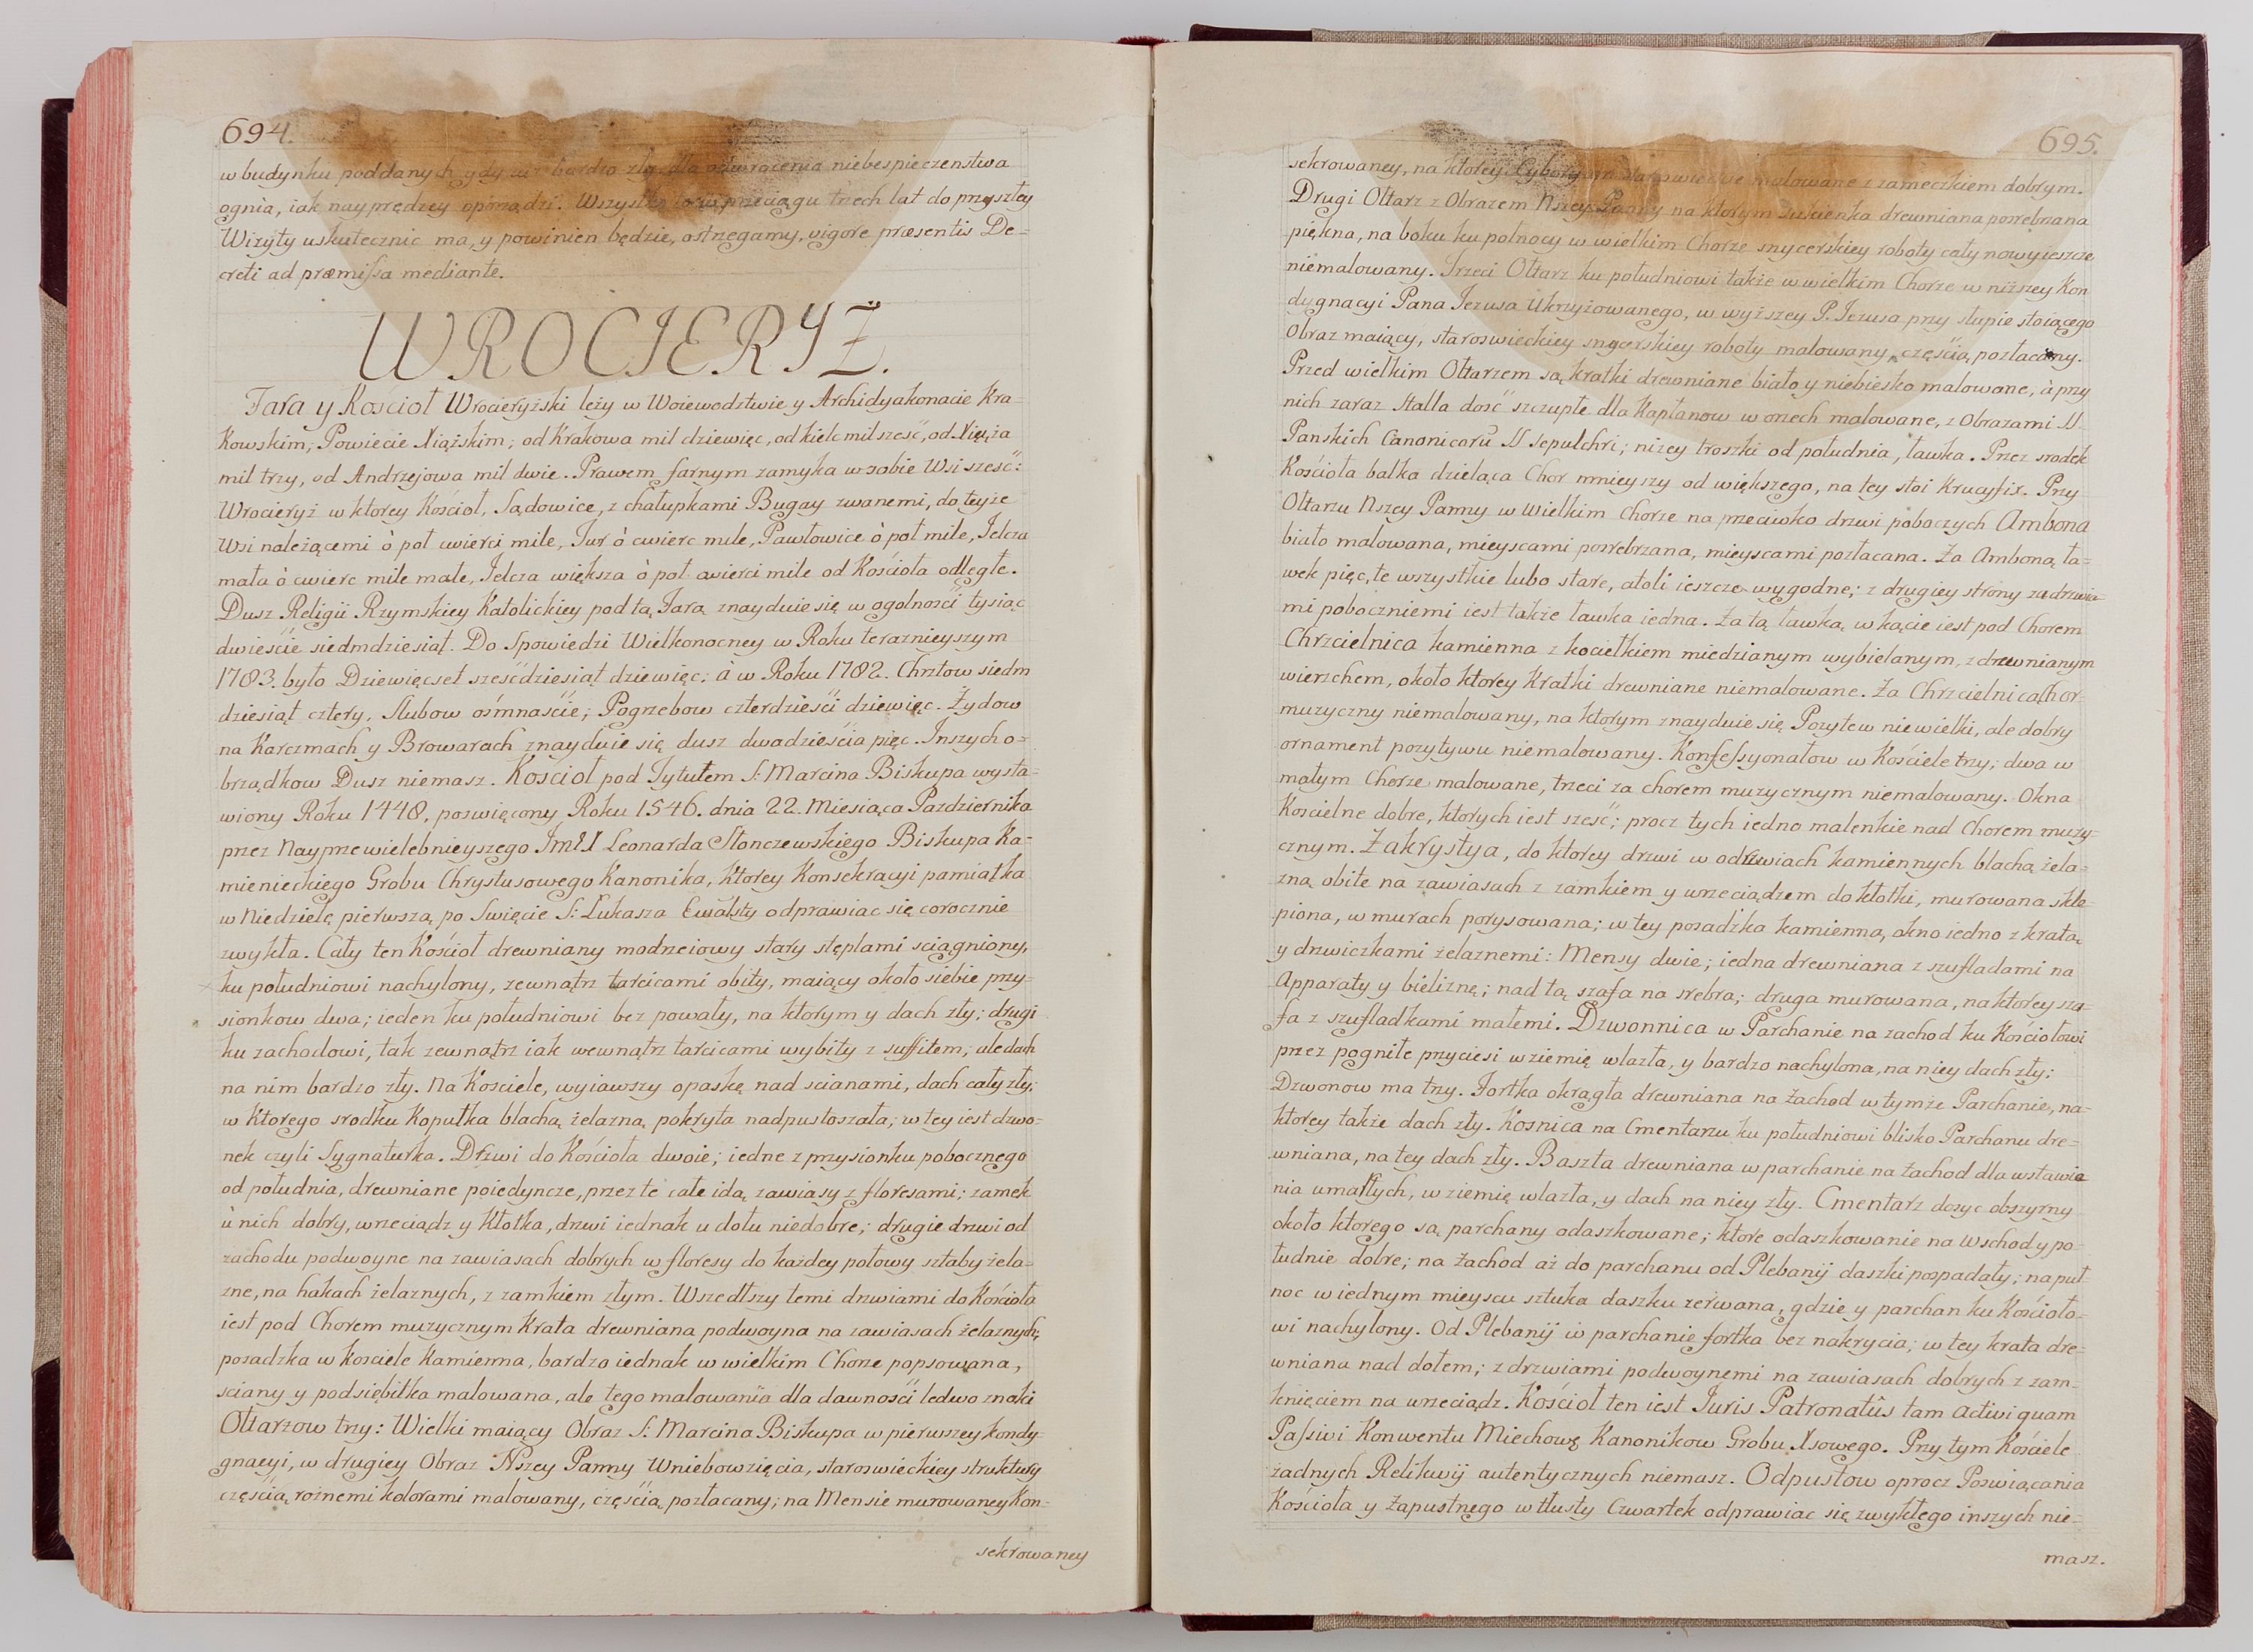 694.
w budynku poddanych gdyż iuż bardzo zły dla odwrocenia niebespieczenstwa
ognia, iak nayprędzey oporządzi. Wszystko to w przeciągu trzech lat do przyszłey
Wizyty uskutecznic ma, y powinien będzie, ostrzegamy, vigore præsentis De=
creti ad præmissa mediante.
WROCIERYŻ.
Fara y Kościoł Wrocieryżski leży w Woiewodztwie y Archidyakonacie Kra=
Kowskim; Powiecie Xiążskim; od Krakowa mil dziewięc, od kielc mil szesć, od Xięża
mil trzy, od Andrzejowa mil dwie. Prawem farnym zamyka w sobie Wsi szesć:
Wrocieryż w ktorey Kościoł, Sądowice, z chałupkami Bugay zwanemi, do teyże
Wsi należącemi ò poł cwierci mile, Tur ò cwierc mile, Pawłowice ò poł mile, Jelcza
mała ò cwierc mile małe, Jelcza większa ò poł cwierci mile od Kościoła odległe.
Dusz Religii Rzymskiey Katolickiey pod tą Farą znayduie się w ogolności tysiąc
dwieście siedmdziesiąt. Do Spowiedzi Wielkonocney w Roku teraznieyszym
1783. było Dziewięcset sześćdziesiąt dziewięc; à w Roku 1782. Chrztow siedm
dziesiąt cztery, Slubow ośmnaście; Pogrzebow czterdzieści dziewięc. Żydow
na Karczmach y Browarach znayduie się dusz dwadzieścia pięc. Inszych o=
brządkow Dusz niemasz. Kościoł pod Tytułem S: Marcina Biskupa wysta=
wiony Roku 1448, poswięcony Roku 1546. dnia 22. Miesiąca Pazdziernika
przez Nayprzewielebnieyszego ImX Leonarda Słonczewskiego Biskupa Ka=
mienieckiego Grobu Chrystusowego Kanonika, Ktorey Konsekracyi pamiątka
w Niedzielę pierwszą po Swięcie S: Łukasza Ewãlsty odprawiac się corocznie
zwykła. Cały ten Kościoł drewniany modrzeiowy stary stęplami sciągniony,
ku południowi nachylony, zewnątrz tarcicami obity, maiący około siebie przy=
sionkow dwa; ieden ku południowi bez powały, na ktorym y dach zły; drugi
ku zachodowi, tak zewnątrz iak wewnątrz tarcicami wybity z suffitem, ale dach
na nim bardzo zły. Na Kosciele, wyiawszy opaskę nad scianami, dach cały zły;
w Ktorego srodku Kopułka blachą żelazną pokryta nadpustoszała; w tey iest dzwo=
nek czyli Sygnaturka. Drzwi do Kościoła dwoie; iedne z przysionku pobocznego
od południa, drewniane poiedyncze, przez te całe idą zawiasy z floresami; zamek
ù nich dobry, wrzeciądz y kłotka, drzwi iednak u dołu niedobre; drugie drzwi od
zachodu podwoyne na zawiasach dobrych w floresy do każdey połowy sztaby żela=
zne, na hakach żelaznych, z zamkiem złym. Wszedłszy temi drzwiami do Kościoła
iest pod Chorem muzycznym Krata drewniana podwoyna na zawiasach żelaznych,
posadzka w Kościele Kamienna, bardzo iednak w wielkim Chorze popsowana,
sciany y podsiębitka malowana, ale tego malowania dla dawności ledwo znaki
Ołtarzow trzy: Wielki maiący Obraz S: Marcina Biskupa w pierwszey kondy=
gnacyi, w drugiey Obraz Nszey Panny Wniebowzięcia, staroswieckiey struktury
częścią rożnemi kolorami malowany, częścią pozłacany; na Mensie murowaney Kon=
sekrowaney
695.
sekrowaney, na ktorey Cyboryum staroswieckie malowane z zameczkiem dobrym.
Drugi Ołtarz z Obrazem Nszey Panny na ktorym sukienka drewniana posrebrzana
piękna, na boku ku połnocy w wielkim Chorze snycerskiey roboty cały nowy ieszcze
niemalowany. Trzeci Ołtarz ku południowi także w wielkim Chorze w niższey Kon
dygnacyi Pana Jezusa Ukrzyżowanego, w wyższey P. Jezusa przy słupie stoiącego
Obraz maiący, staroswieckiey snycerskiey roboty malowany, częścią pozłacany.
Przed wielkim Ołtarzem są kratki drewniane biało y niebiesko malowane, à przy
nich zaraz Stalla dosć szczupłe dla Kapłanow w orzech malowane, z Obrazami SS
Panskich Canonicorũ SS Sepulchri; niżey troszki od południa, ławka. Przez srodek
Kościoła balka dzieląca Chor mnieyszy od większego, na tey stoi Krucyfix. Przy
Ołtarzu Nszey Panny w Wielkim Chorze na przeciwko drzwi pobocznych Ambona
biało malowana, mieyscami posrebrzana, mieyscami pozłacana. Za Amboną ła=
wek pięc, te wszystkie lubo stare, atoli ieszcze wygodne; z drugiey strony za drzwia
mi pobocznemi iest także ławka iedna. Za tą ławką w kącie iest pod Chorem
Chrzcielnica kamienna z kociełkiem miedzianym wybielanym, z drewnianym
wierzchem, około ktorey Kratki drewniane niemalowane. Za Chrzcielnicą Chor=
muzyczny niemalowany, na ktorym znayduie się Pozytew niewielki, ale dobry
ornament pozytywu niemalowany. Konfessyonałow w Kościele trzy; dwa w
małym Chorze malowane, trzeci za chorem muzycznym niemalowany. Okna
Koscielne dobre, ktorych iest sześć; procz tych iedno malenkie nad Chorem muzy=
cznym. Zakrystya, do ktorey drzwi w odrzwiach kamiennych blachą żela=
zną obite na zawiasach z zamkiem y wrzeciądzem do kłotki, murowana skle
piona, w murach porysowana; w tey posadzka kamienna, okno iedno z kratą
y drzwiczkami żelaznemi: Mensy dwie; iedna drewniana z szufladami na
Apparaty y bieliznę; nad tą szafa na srebra; druga murowana, na ktorey sza=
fa z szufladkami małemi. Dzwonnica w Parchanie na zachod ku Kościołowi
przez pogniłe przyciesi w ziemię wlazła, y bardzo nachylona, na niey dach zły;
Dzwonow ma trzy. Fortka okrągła drewniana na Zachod w tymże Parchanie, na=
ktorey także dach zły. Kosnica na Cmentarzu ku południowi blisko Parchanu dre=
wniana, na tey dach zły. Baszta drewniana w parchanie na zachod dla wstawia
nia umarłych, w ziemię wlazła, y dach na niey zły. Cmentarz dosyc obszyrny
około ktorego są parchany odaszkowane; ktore odaszkowanie na Wschod y po=
łudnie dobre; na Zachod aż do parchanu od Plebanij daszki pospadały; na puł=
noc w iednym mieyscu sztuka daszku zerwana, gdzie y parchan ku Kościoło=
wi nachylony. Od Plebanij w parchanie fortka bez nakrycia; w tey krata dre=
wniana nad dołem; z drzwiami podwoynemi na zawiasach dobrych z zam=
knięciem na wrzeciądz. Kościoł ten iest Juris Patronatûs tam activi quam
Passivi Konwentu Miechowę Kanonikow Grobu Xsowego. Przy tym Kościele
żadnych Relikwij autentycznych niemasz. Odpustow oprocz Poswiącania
Kościoła y Zapustnego w tłusty Czwartek odprawiac się zwykłego inszych nie=
masz.